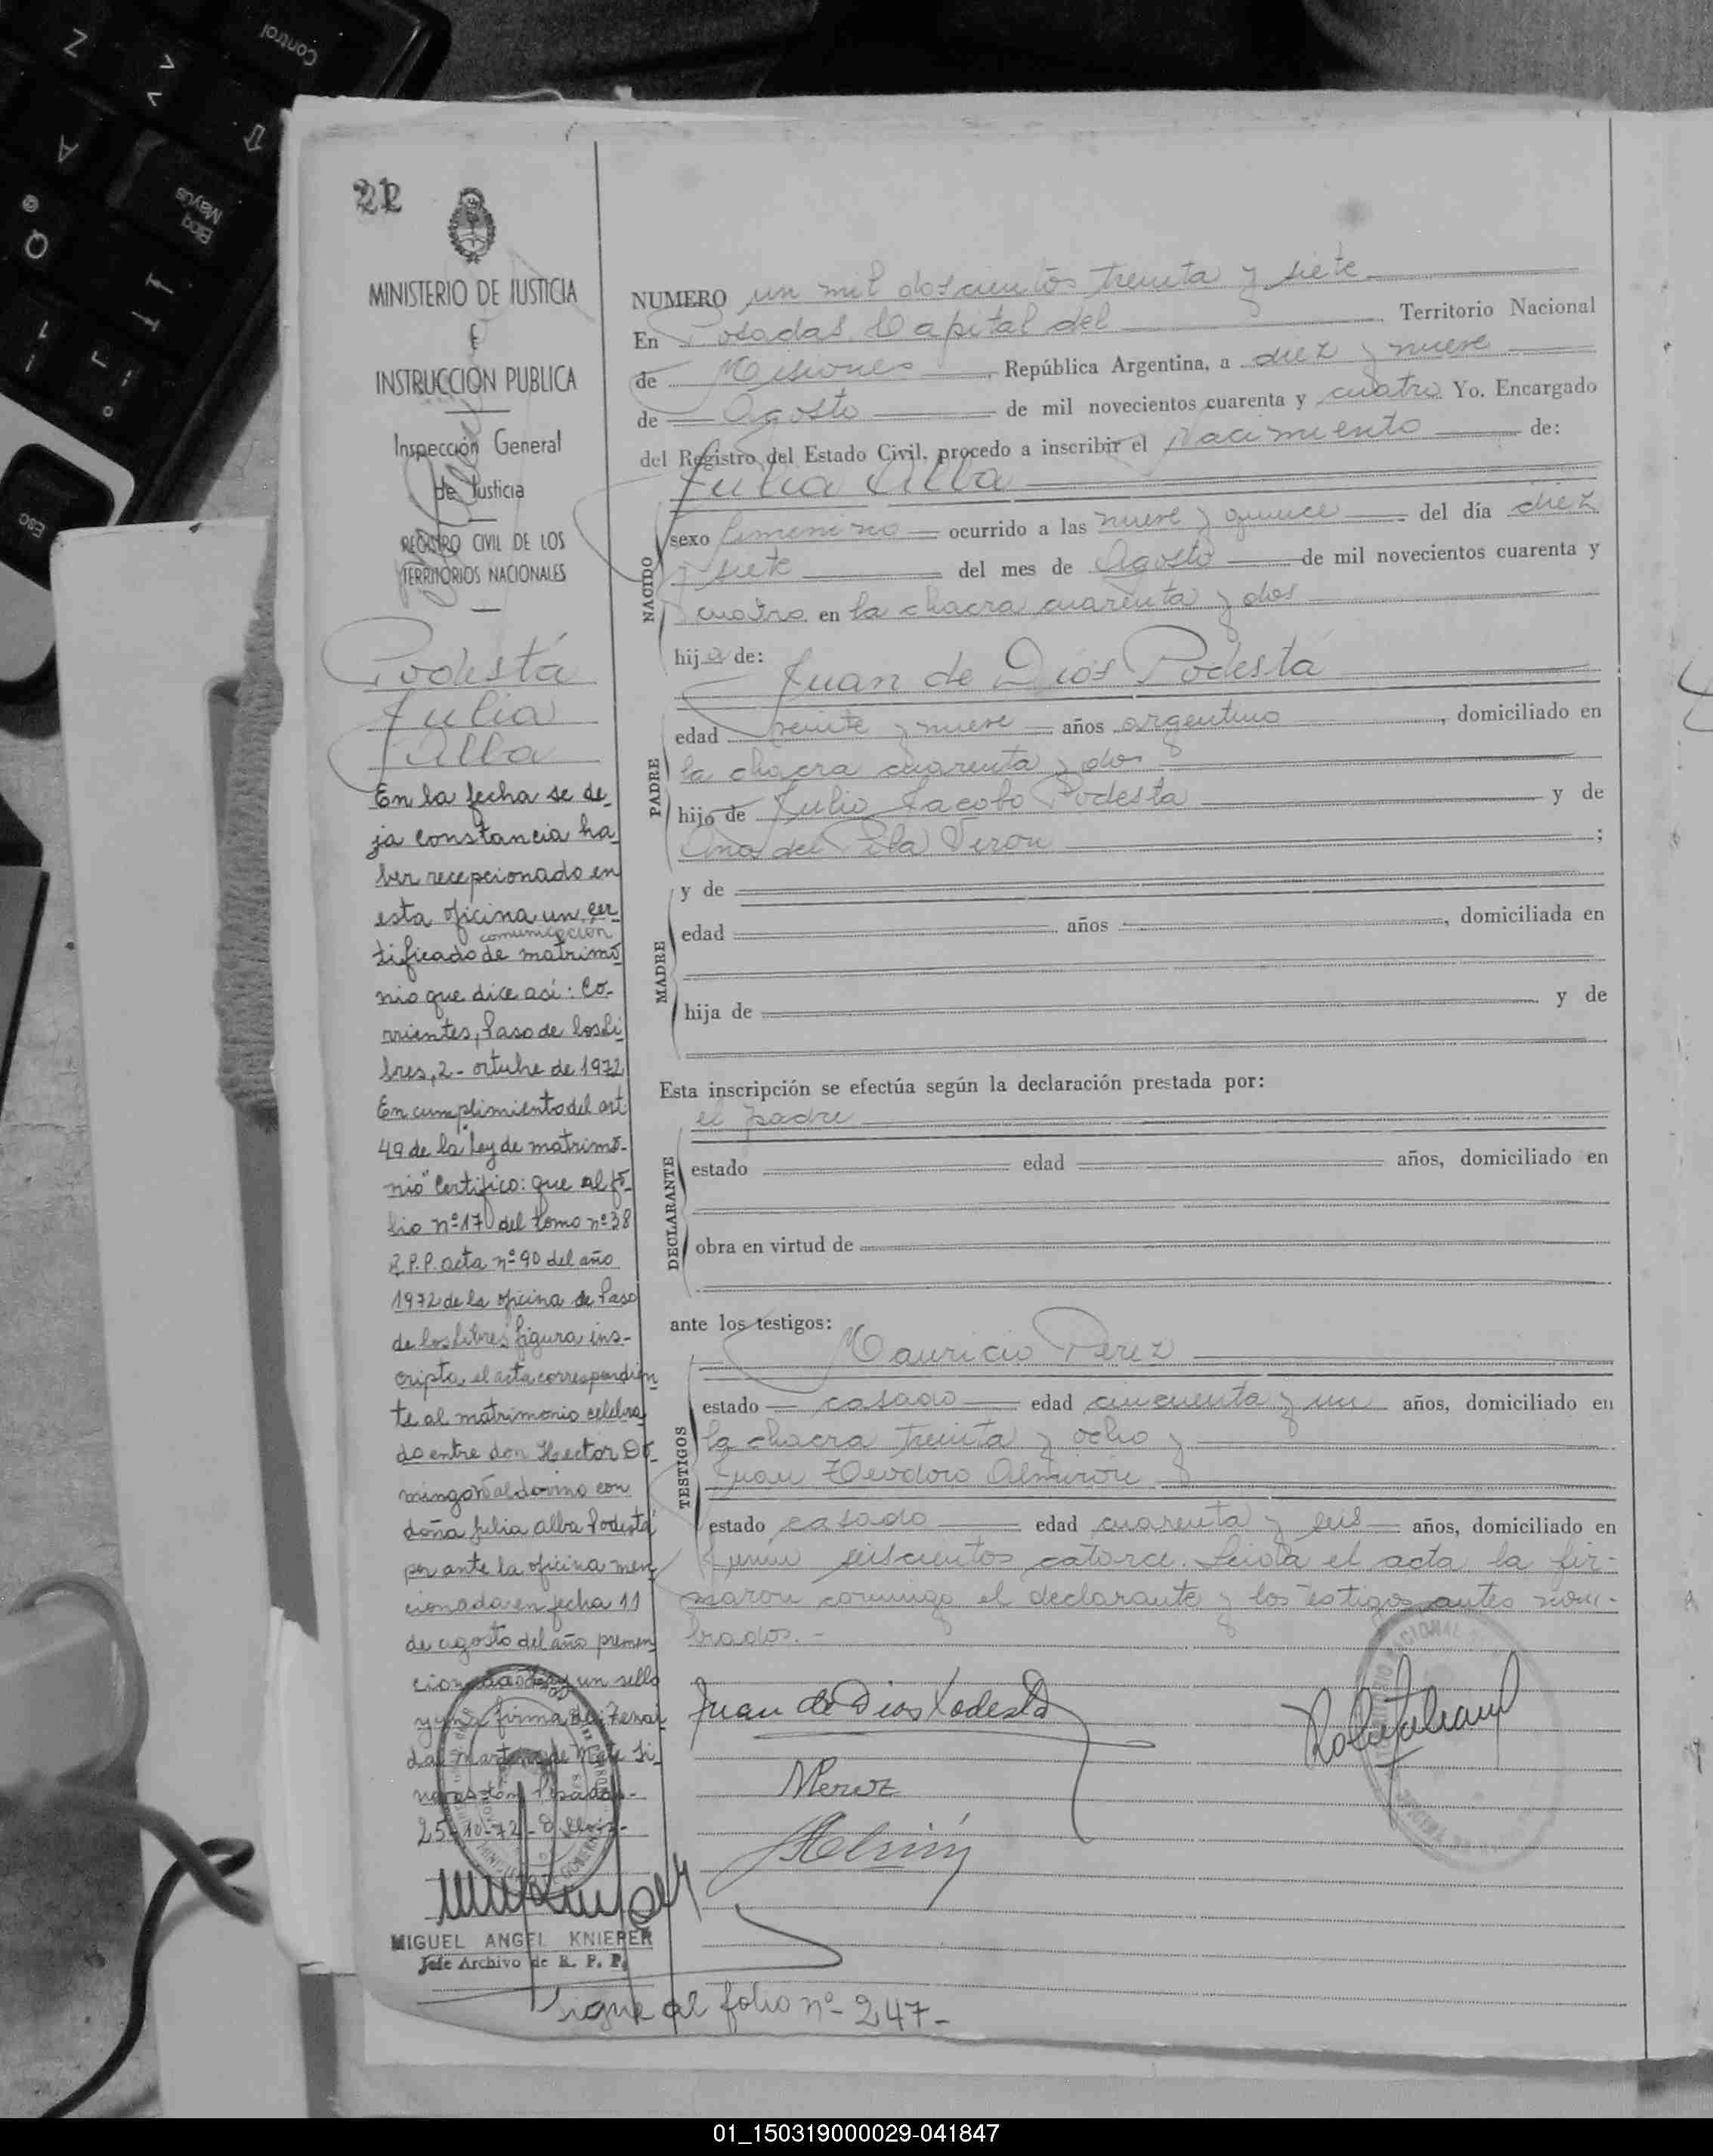 Control
Z
A
Bloq
Mayús
Q
ESC
22
MINISTERIO DE JUSTICIA
E
INSTRUCCION PUBLICA
Inspección General
de Justicia
REGISTRO CIVIL DE LOS
TERRITORIOS NACIONALES
Podestá
Julia
Alba
En la fecha se de_
ja constancia ha_
ber recepcionado en
esta oficina un cer_
comunicación
tificado de matrimo_
nio que dice así: Co-
rrientes, Paso de los Li
bres, 2 - octubre de 1972
En cumplimiento del art.
49 de la "Ley de matrimo-
nio" Certifico: que al fo-
lio nº 17 del tomo nº 38
R.P.P. acta nº 90 del año
1972 de la oficina de Paso
de los Libres figura ins-
cripta el acta correspondien
te al matrimonio celebra
do entre don Hector Do-
mingo Valdovino con
doña Julia Alba Podestá
por ante la oficina men
cionada en fecha 11
de agosto del año premen
cionado. Hay un sello
y una firma
25-10-72-
MIGUEL ANGEL KNIEPER
Jefe Archivo de R. P. P.
NUMERO un mil doscientos treinta y siete
En Posadas, Capital del Territorio Nacional
de Misiones, República Argentina, a diez y nueve
de Agosto de mil novecientos cuarenta y cuatro Yo. Encargado
del Registro del Estado Civil, procedo a inscribir el Nacimiento de:
Julia Alba
NACIDO
sexo femenino ocurrido a las nueve y quince del día diez
y siete del mes de Agosto de mil novecientos cuarenta y
cuatro en la chacra cuarenta y dos
hija de:
Juan de Dios Podestá
PADRE
edad veinte y nueve años argentino, domiciliado en
la chacra cuarenta y dos
hijo de Julio Jacobo Podestá y de
Ana del Pila Veron ;
MADRE
y de
edad años, domiciliada en
hija de y de
Esta inscripción se efectúa según la declaración prestada por:
el padre
DECLARANTE
estado edad años, domiciliado en
obra en virtud de
ante los testigos:
Mauricio Perez
TESTIGOS
estado casado edad cincuenta y un años, domiciliado en
la chacra treinta y ocho y
Juan Teodoro Almirón
estado casado edad cuarenta y seis años, domiciliado en
Junín seiscientos catorce. Leida el acta la fir-
maron conmigo el declarante y los testigos antes nom-
brados.-
Juan de Dios Podestá
MPerez
Sigue al folio nº 247-
01_150319000029-041847